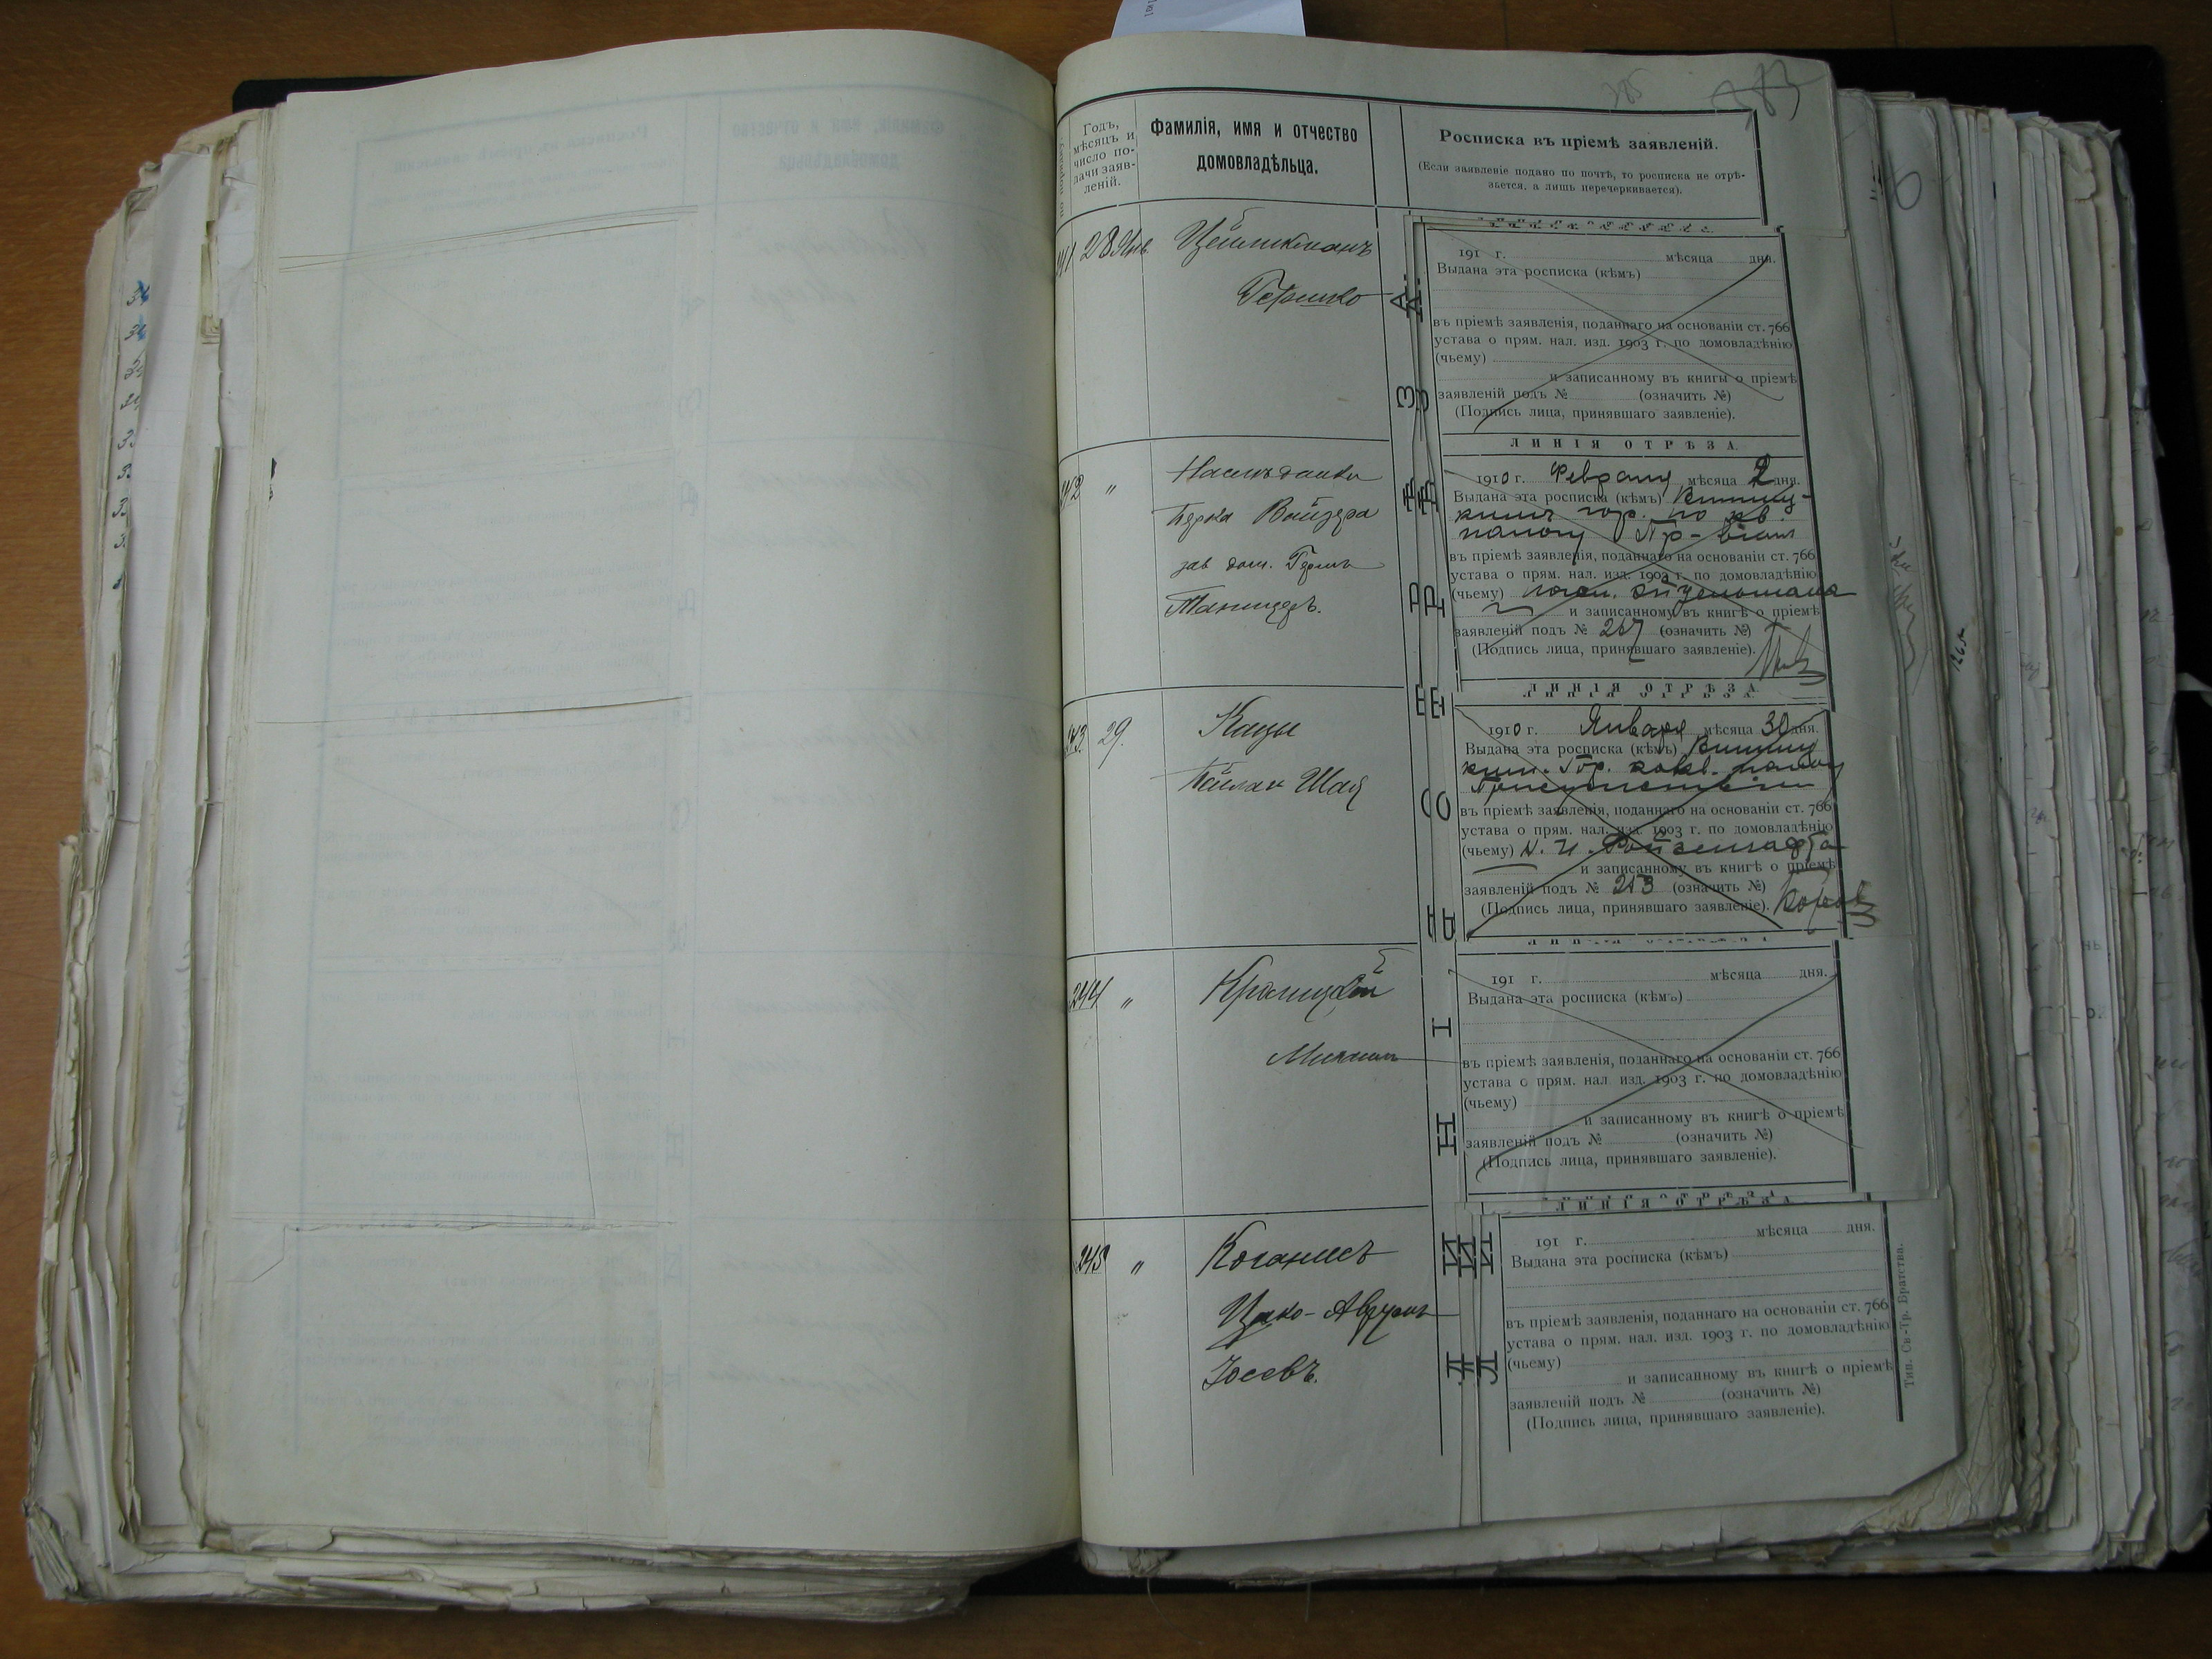 383
№ по порядку
Годъ,
мѣсяцъ и
число по-
дачи заяв-
леній.
Фамилія, имя и отчество
домовладѣльца.
Росписка въ пріемѣ заявленій.
(Если заявленіе подано по почтѣ, то росписка не отрѣ-
зывается, а лишь перечеркивается).
241 28 Янв.
Цейликманъ
Гершко
191 г. мѣсяца дня.
Выдана эта росписка (кѣмъ)
въ пріемѣ заявленія, поданнаго на основаніи ст. 766
устава о прям. нал. изд. 1903 г. по домовладѣнію
(чьему)
и записанному въ книгы о пріемѣ
заявленій подъ № (означить №)
(Подпись лица, принявшаго заявленіе).
ЛИНІЯ ОТРѢЗА.
242 "
Наслѣдники
Берка Вайзера
зав дом. Герш
Танцеръ.
1910 г. Февраля мѣсяца 2 дня.
Выдана эта росписка (кѣмъ) Винниц-
кимъ гор. по кв.
налогу Пр-віем
въ пріемѣ заявленія, поданнаго на основаніи ст. 766
устава о прям. нал. изд. 1903 г. по домовладѣнію
(чьему)
и записанному въ книгѣ о пріемѣ
заявленій подъ № 267 (означить №)
(Подпись лица, принявшаго заявленіе).
ЛИНІЯ ОТРѢЗА.
243 29.
Кацы
Бейла и Шая
1910 г. Января мѣсяца 30 дня.
Выдана эта росписка (кѣмъ) Винниц
ким. Гор. по кв. налогу
Присутствіем
въ пріемѣ заявленія, поданнаго на основаніи ст. 766
устава о прям. нал. изд. 1903 г. по домовладѣнію
(чьему)
и записанному въ книгѣ о пріемѣ
заявленій подъ № 253 (означить №)
(Подпись лица, принявшаго заявленіе).
244 "
Краницкій
Михаил
191 г. мѣсяца дня.
Выдана эта росписка (кѣмъ)
въ пріемѣ заявленія, поданнаго на основаніи ст. 766
устава о прям. нал. изд. 1903 г. по домовладѣнію
(чьему)
и записанному въ книгѣ о пріемѣ
заявленій подъ № (означить №)
(Подпись лица, принявшаго заявленіе).
ЛИНІЯ ОТРѢЗА.
245 "
Коганисъ
Ицко-Аврумъ
Іосевъ.
191 г. мѣсяца дня.
Выдана эта росписка (кѣмъ)
въ пріемѣ заявленія, поданнаго на основаніи ст. 766
устава о прям. нал. изд. 1903 г. по домовладѣнію
(чьему)
и записанному въ книгѣ о пріемѣ
заявленій подъ № (означить №)
(Подпись лица, принявшаго заявленіе).
Тип. Св.-Тр. Братства.